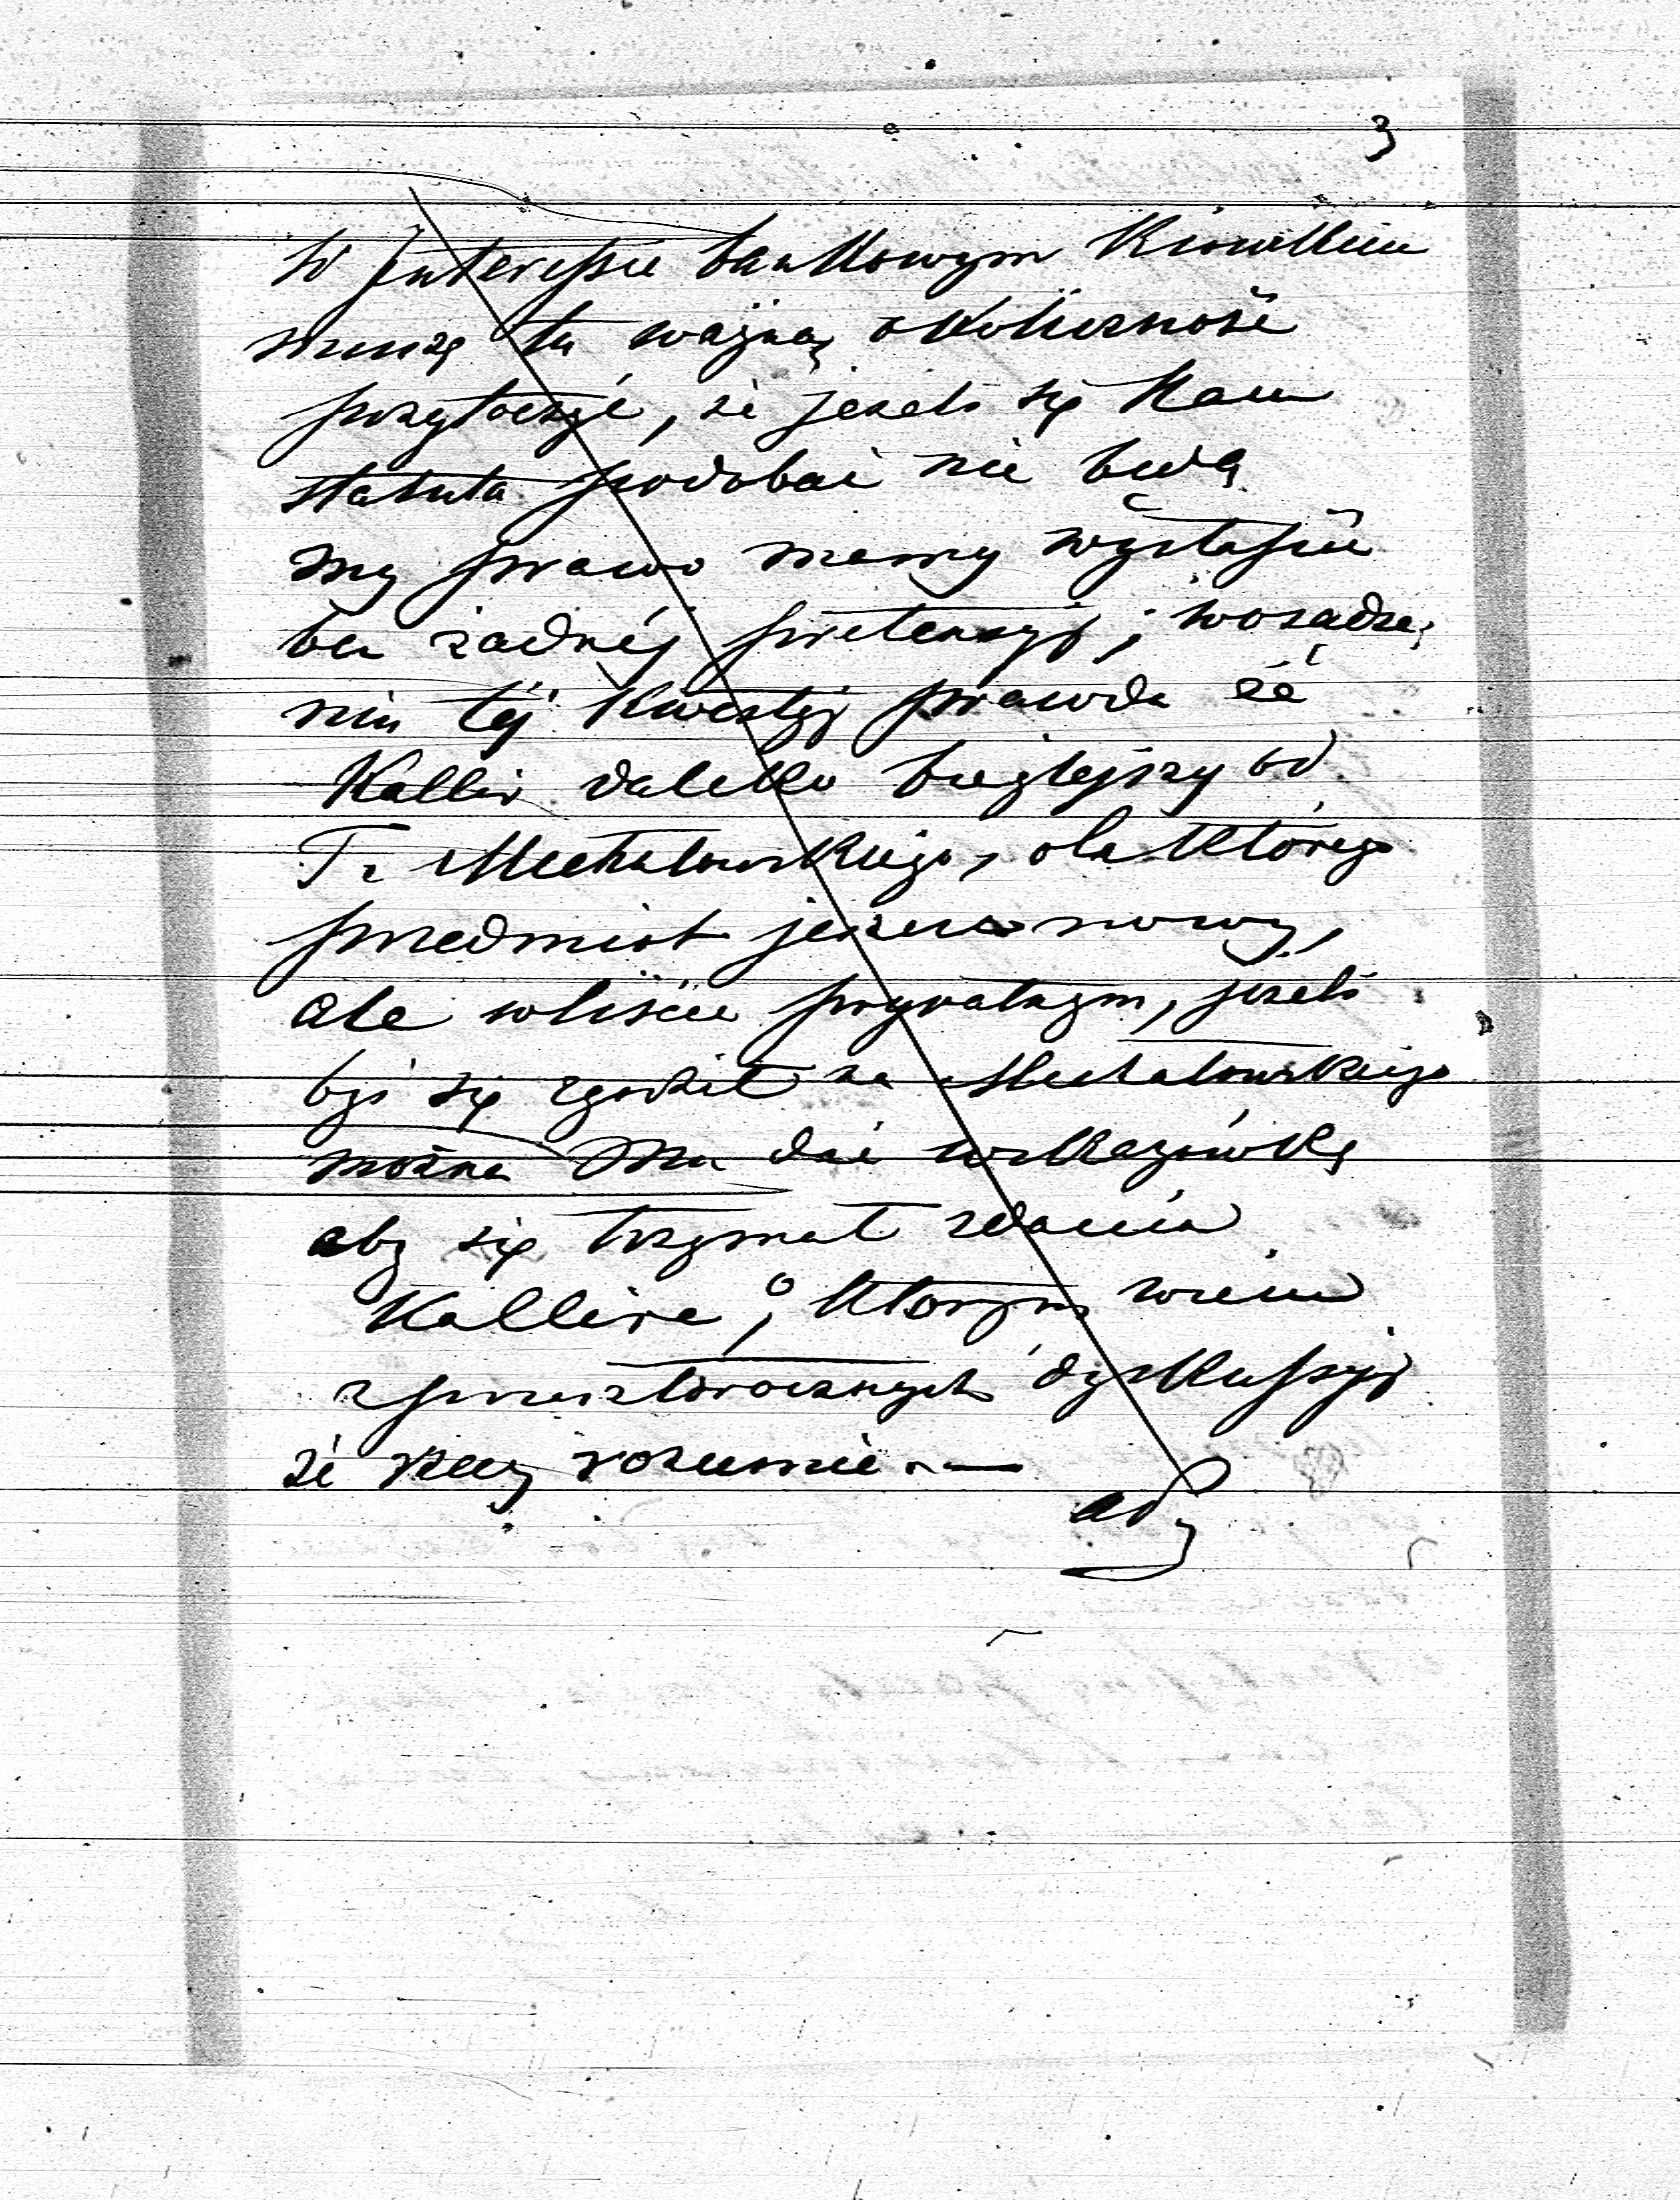 3
W Interessie bankowym Kiowskim
muszę tu ważną okoliczność
przytoczyć, że jeżeli się Nam
statuta podobać nie będą
my prawo mamy wystąpić
bez żadnéj pretensyi; wosadze,
niu téj kwestyi prawda że
Kallir daleko bieglejszy od
Tr Mechalowskiego, dla którego
przedmiot jeszcze nowy,
ale wliście prywatnym, jeżeli
byś się zgodził na Mechalowskiego
można Mu dać wskazówkę
aby się trzymał zdania
Kallira, o którym wiem
z przeszłorocznych dyskussyi
że rzecz rozumie. —